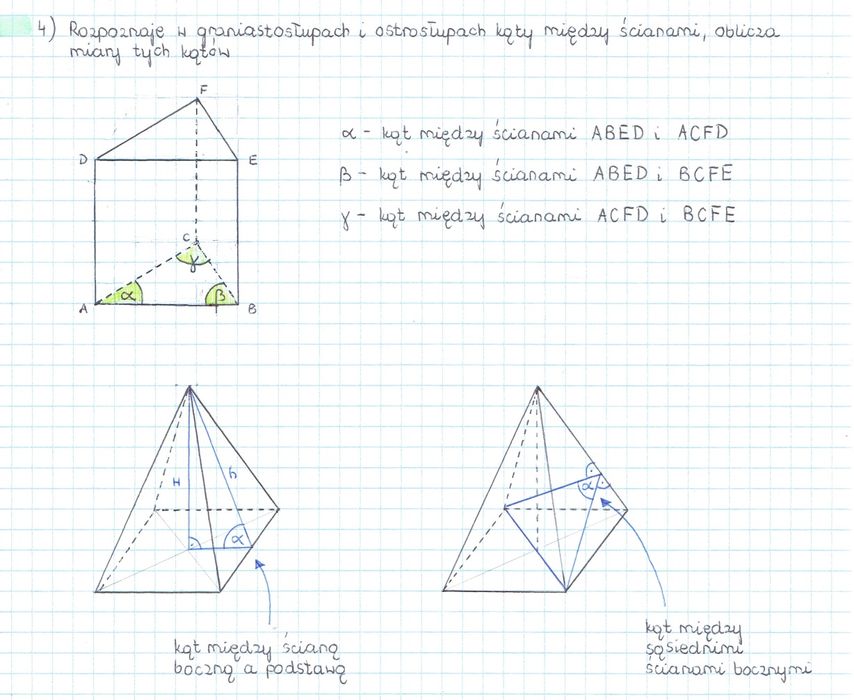 4) Rozpoznaje w graniastosłupach i ostrosłupach kąty między ścianami, oblicza
miary tych kątów
F
D
E
C
γ
α
β
A
B
α - kąt między ścianami ABED i ACFD
β - kąt między ścianami ABED i BCFE
γ - kąt między ścianami ACFD i BCFE
H
h
α
kąt między ścianą
boczną a podstawą
α
kąt między
sąsiednimi
ścianami bocznymi